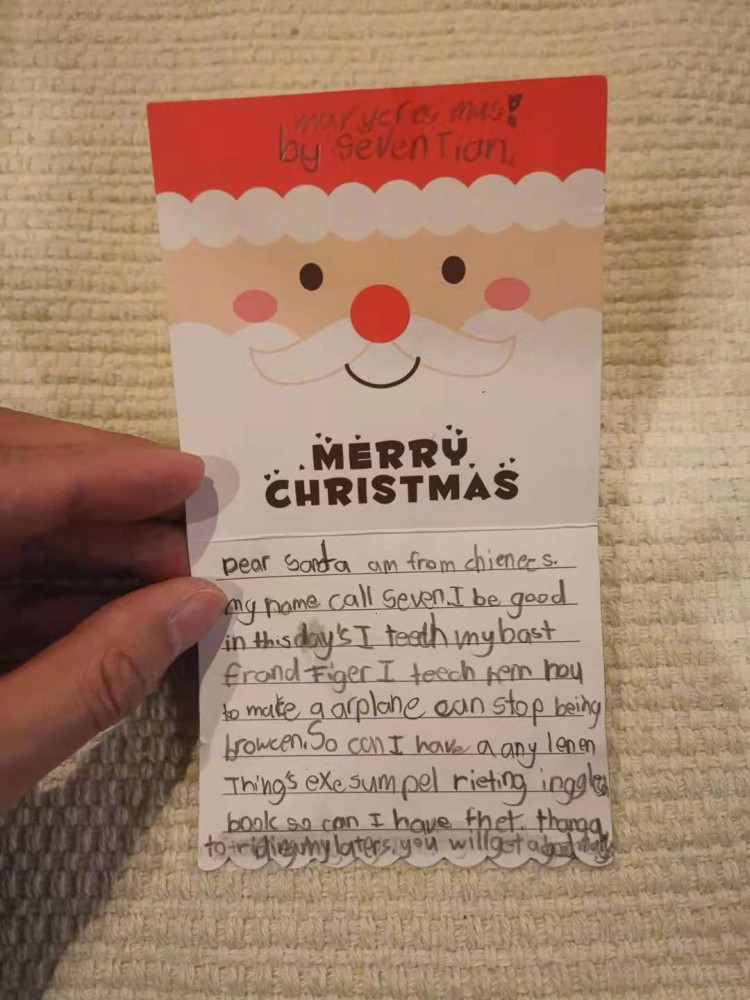 marycresmas!
by Seven Tian.
MERRY
CHRISTMAS
Dear Santa am from chienees.
my name call Seven. I be good
in this day's I teeth my bast
frand Tiger I teech hem how
to make a arplane can stop being
browcen. So can I have a any lenen
Thing's exe sumpel rieting inggles
book so can I have thet. thangq
to ridingmy laters. you will get a